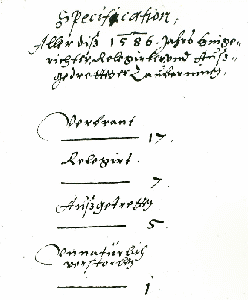 Specification,
Aller diß 1586. Jahrs hinge-
richter, Relegirter und Auß-
gedrettner Zauberinnen,
Verbrant
17.
Relegirt
7
Außgetretten
5
Unnatürlich
verstorben
1